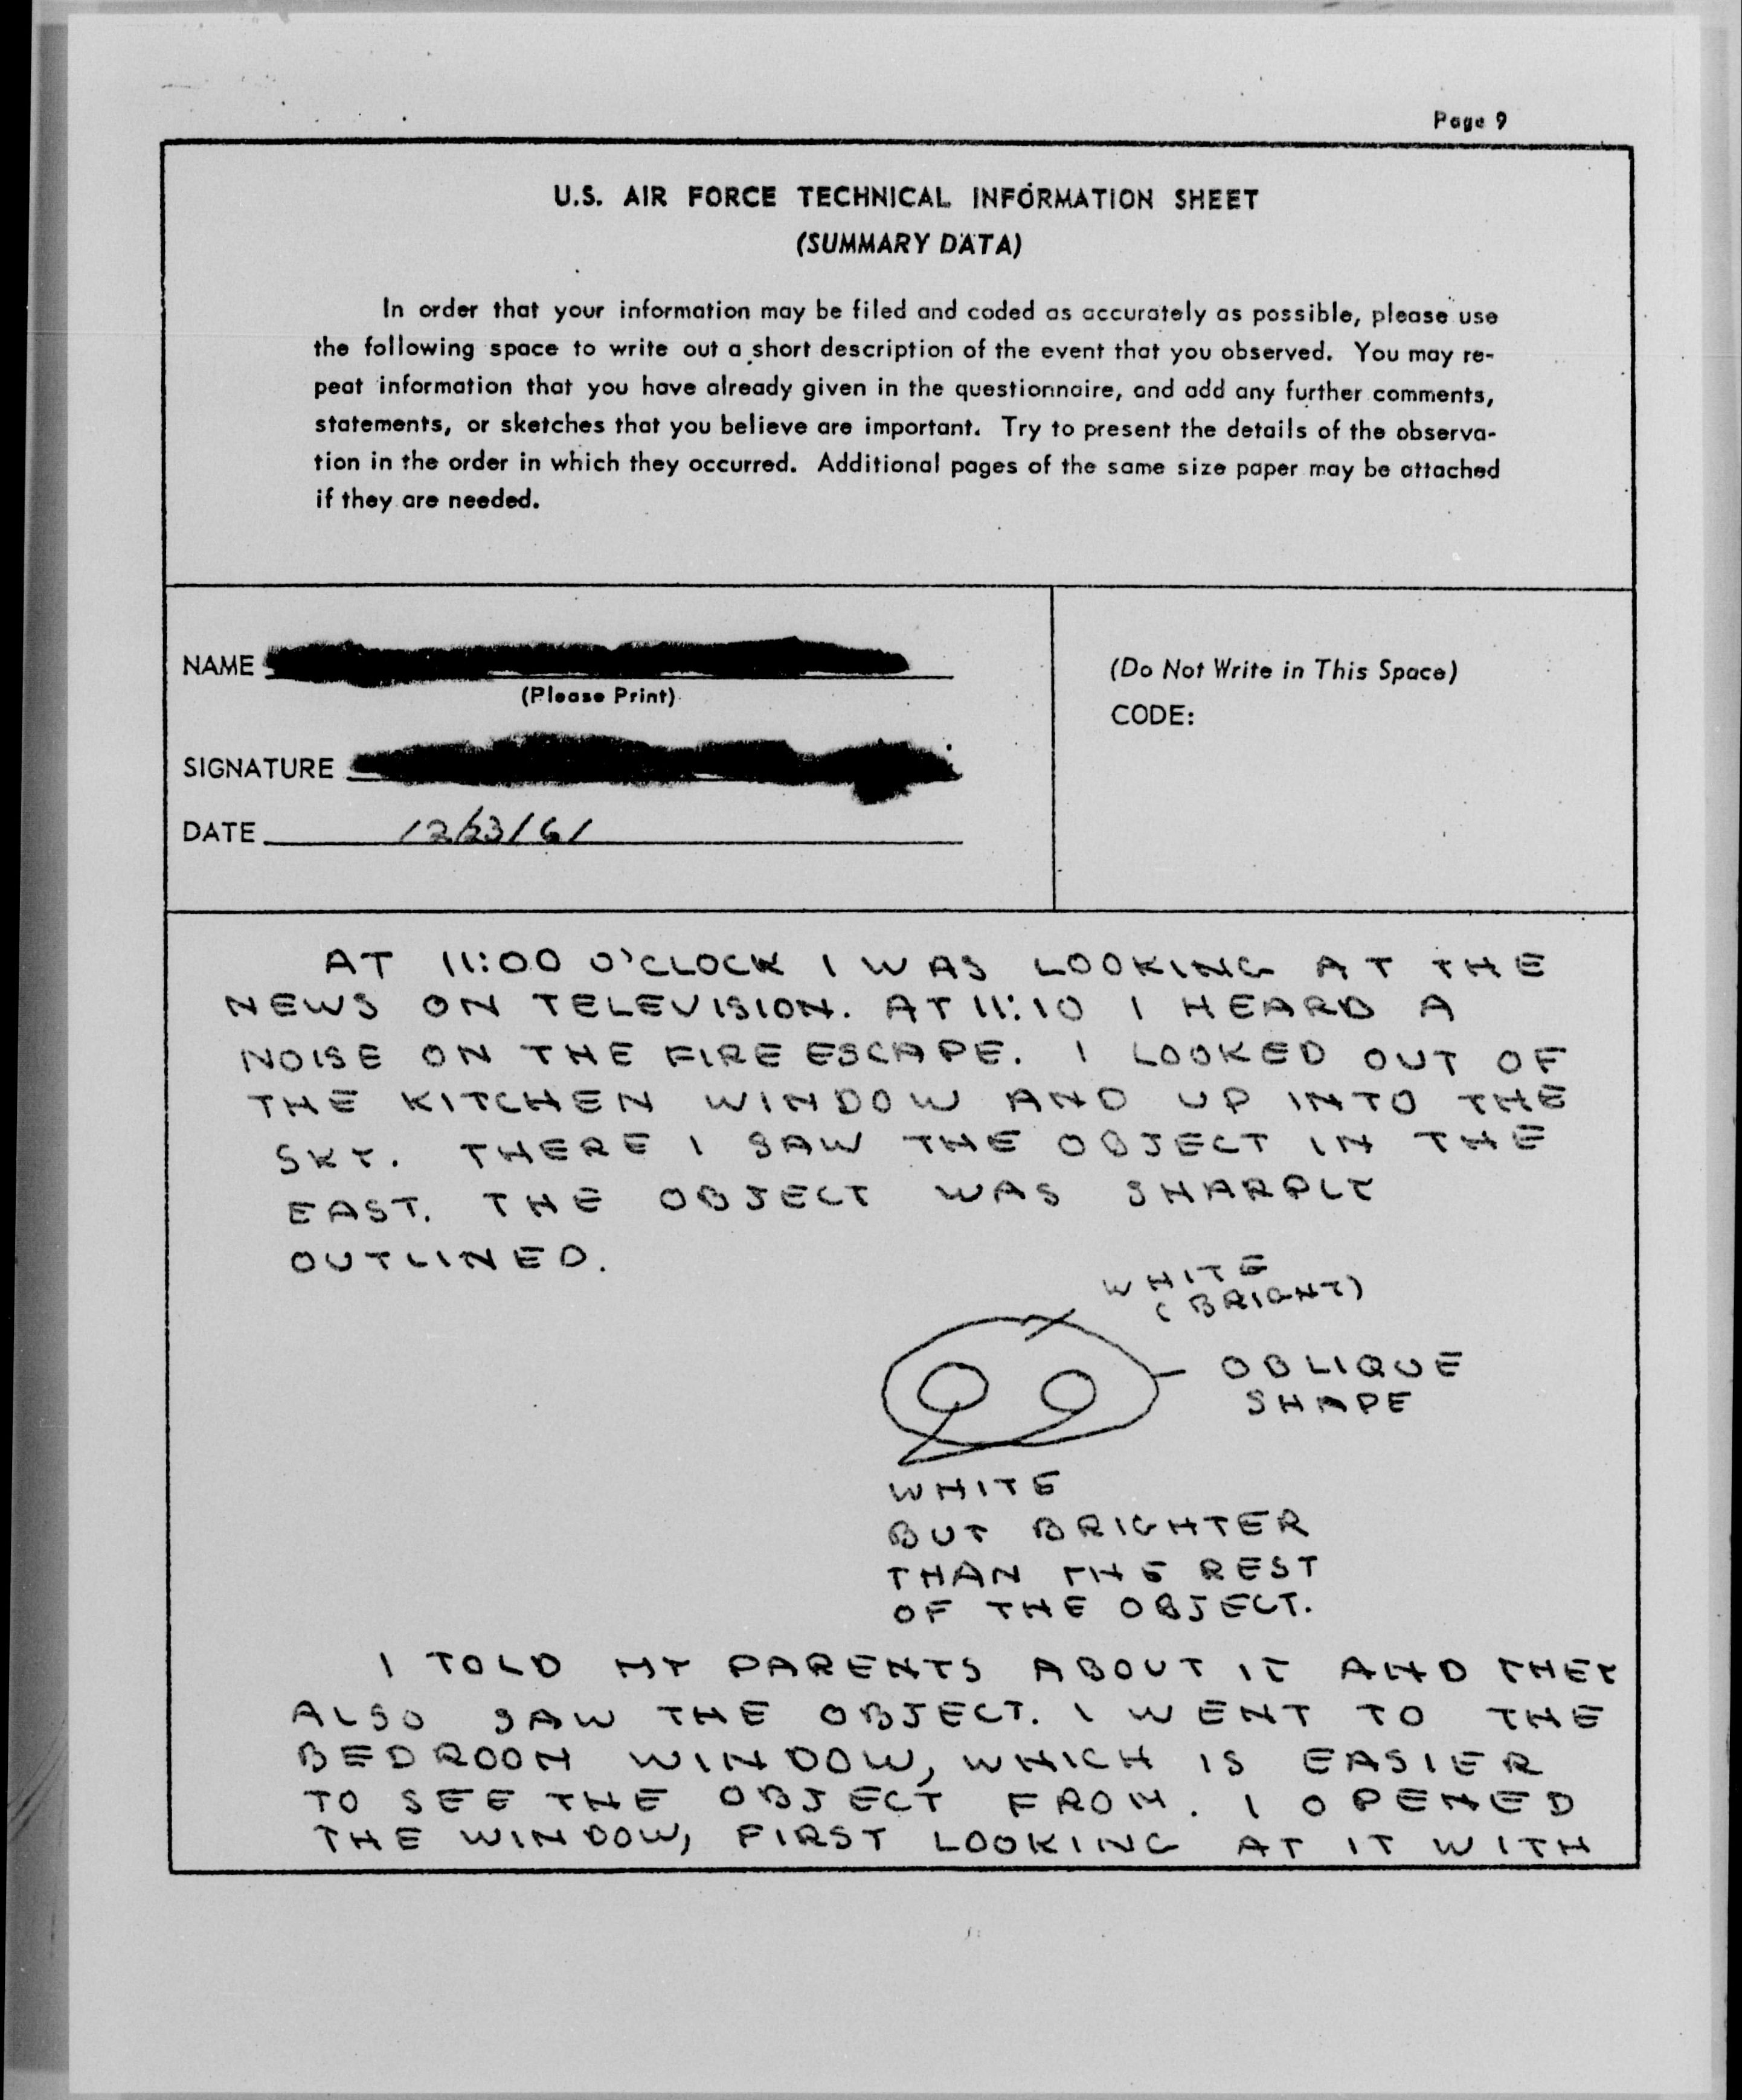 Page 9
U.S. AIR FORCE TECHNICAL INFORMATION SHEET
(SUMMARY DATA)
In order that your information may be filed and coded as accurately as possible, please use
the following space to write out a short description of the event that you observed. You may re-
peat information that you have already given in the questionnaire, and add any further comments,
statements, or sketches that you believe are important. Try to present the details of the observa-
tion in the order in which they occurred. Additional pages of the same size paper may be attached
if they are needed.
NAME
(Please Print)
SIGNATURE
DATE 12/23/61
(Do Not Write in This Space)
CODE:
AT 11:00 O'CLOCK I WAS LOOKING AT THE
NEWS ON TELEVISION. AT 11:10 I HEARD A
NOISE ON THE FIRE ESCAPE. I LOOKED OUT OF
THE KITCHEN WINDOW AND UP INTO THE
SKY. THERE I SAW THE OBJECT IN THE
EAST. THE OBJECT WAS SHARPLY
OUTLINED.
WHITE
(BRIGHT)
OBLIQUE
SHAPE
WHITE
BUT BRIGHTER
THAN THE REST
OF THE OBJECT.
I TOLD MY PARENTS ABOUT IT AND THEY
ALSO SAW THE OBJECT. I WENT TO THE
BEDROOM WINDOW, WHICH IS EASIER
TO SEE THE OBJECT FROM. I OPENED
THE WINDOW, FIRST LOOKING AT IT WITH